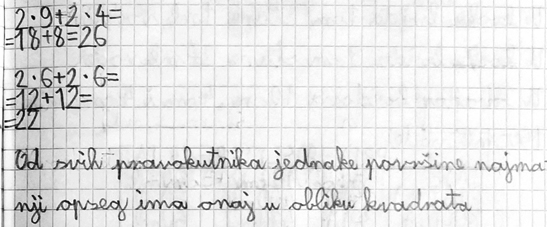 2·9+2·4=
=18+8=26
2·6+2·6=
=12+12=
=22
Od svih pravokutnika jednake površine najma-
nji opseg ima onaj u obliku kvadrata